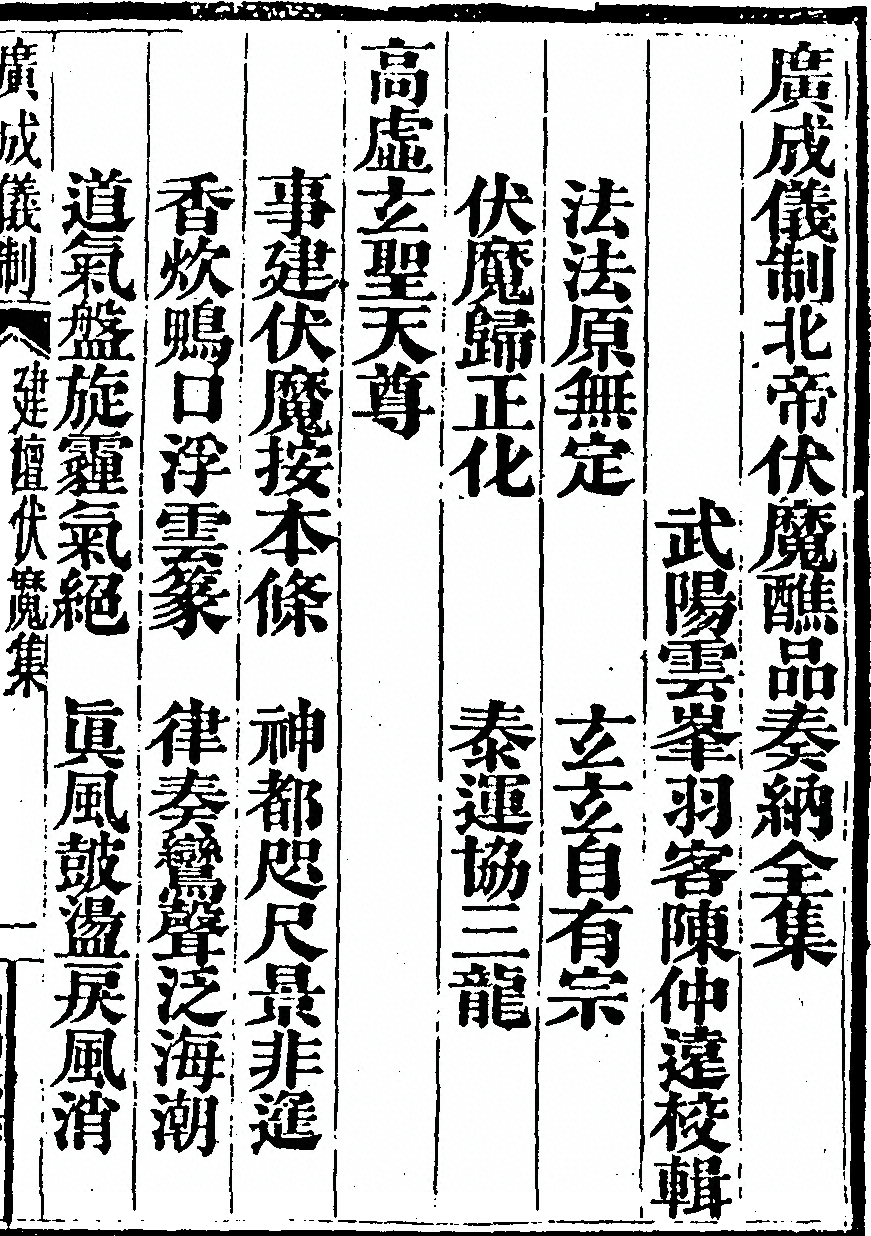 廣成儀制北帝伏魔醮品奏納全集
武陽雲峯羽客陳仲遠校輯
法法原無定 玄玄自有宗
伏魔歸正化 泰運協三龍
高虛玄聖天尊
事建伏魔按本條 神都咫尺景非遙
香炊鴨口浮雲篆 律奏鸞聲泛海潮
道氣盤旋霾氣絕 眞風鼓盪戾風消
廣成儀制 建壇伏魔集